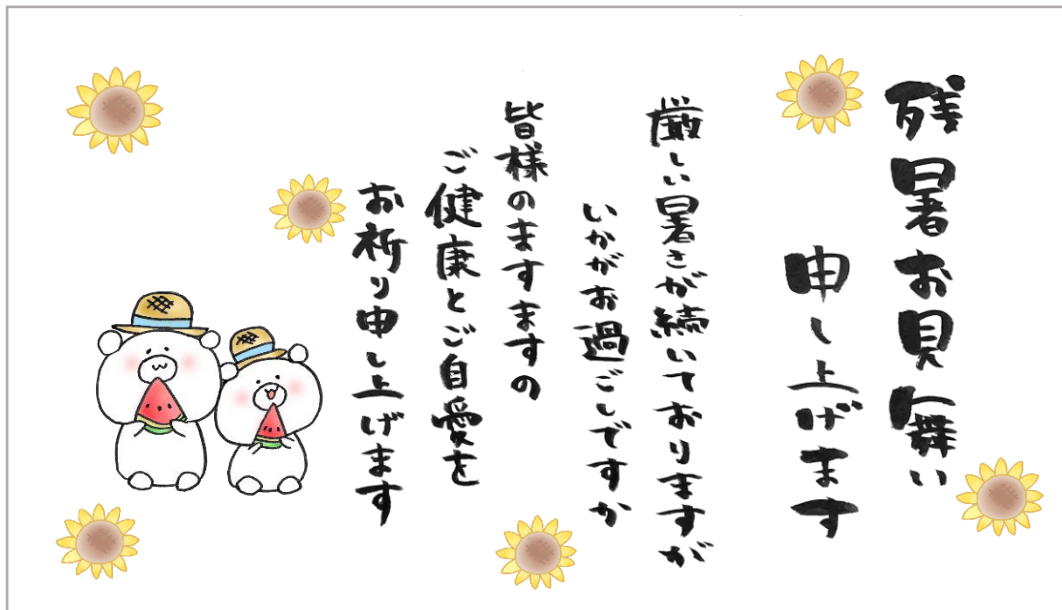 残暑お見舞い
申し上げます
厳しい暑さが続いておりますが
いかがお過ごしですか
皆様のますますの
ご健康とご自愛を
お祈り申し上げます